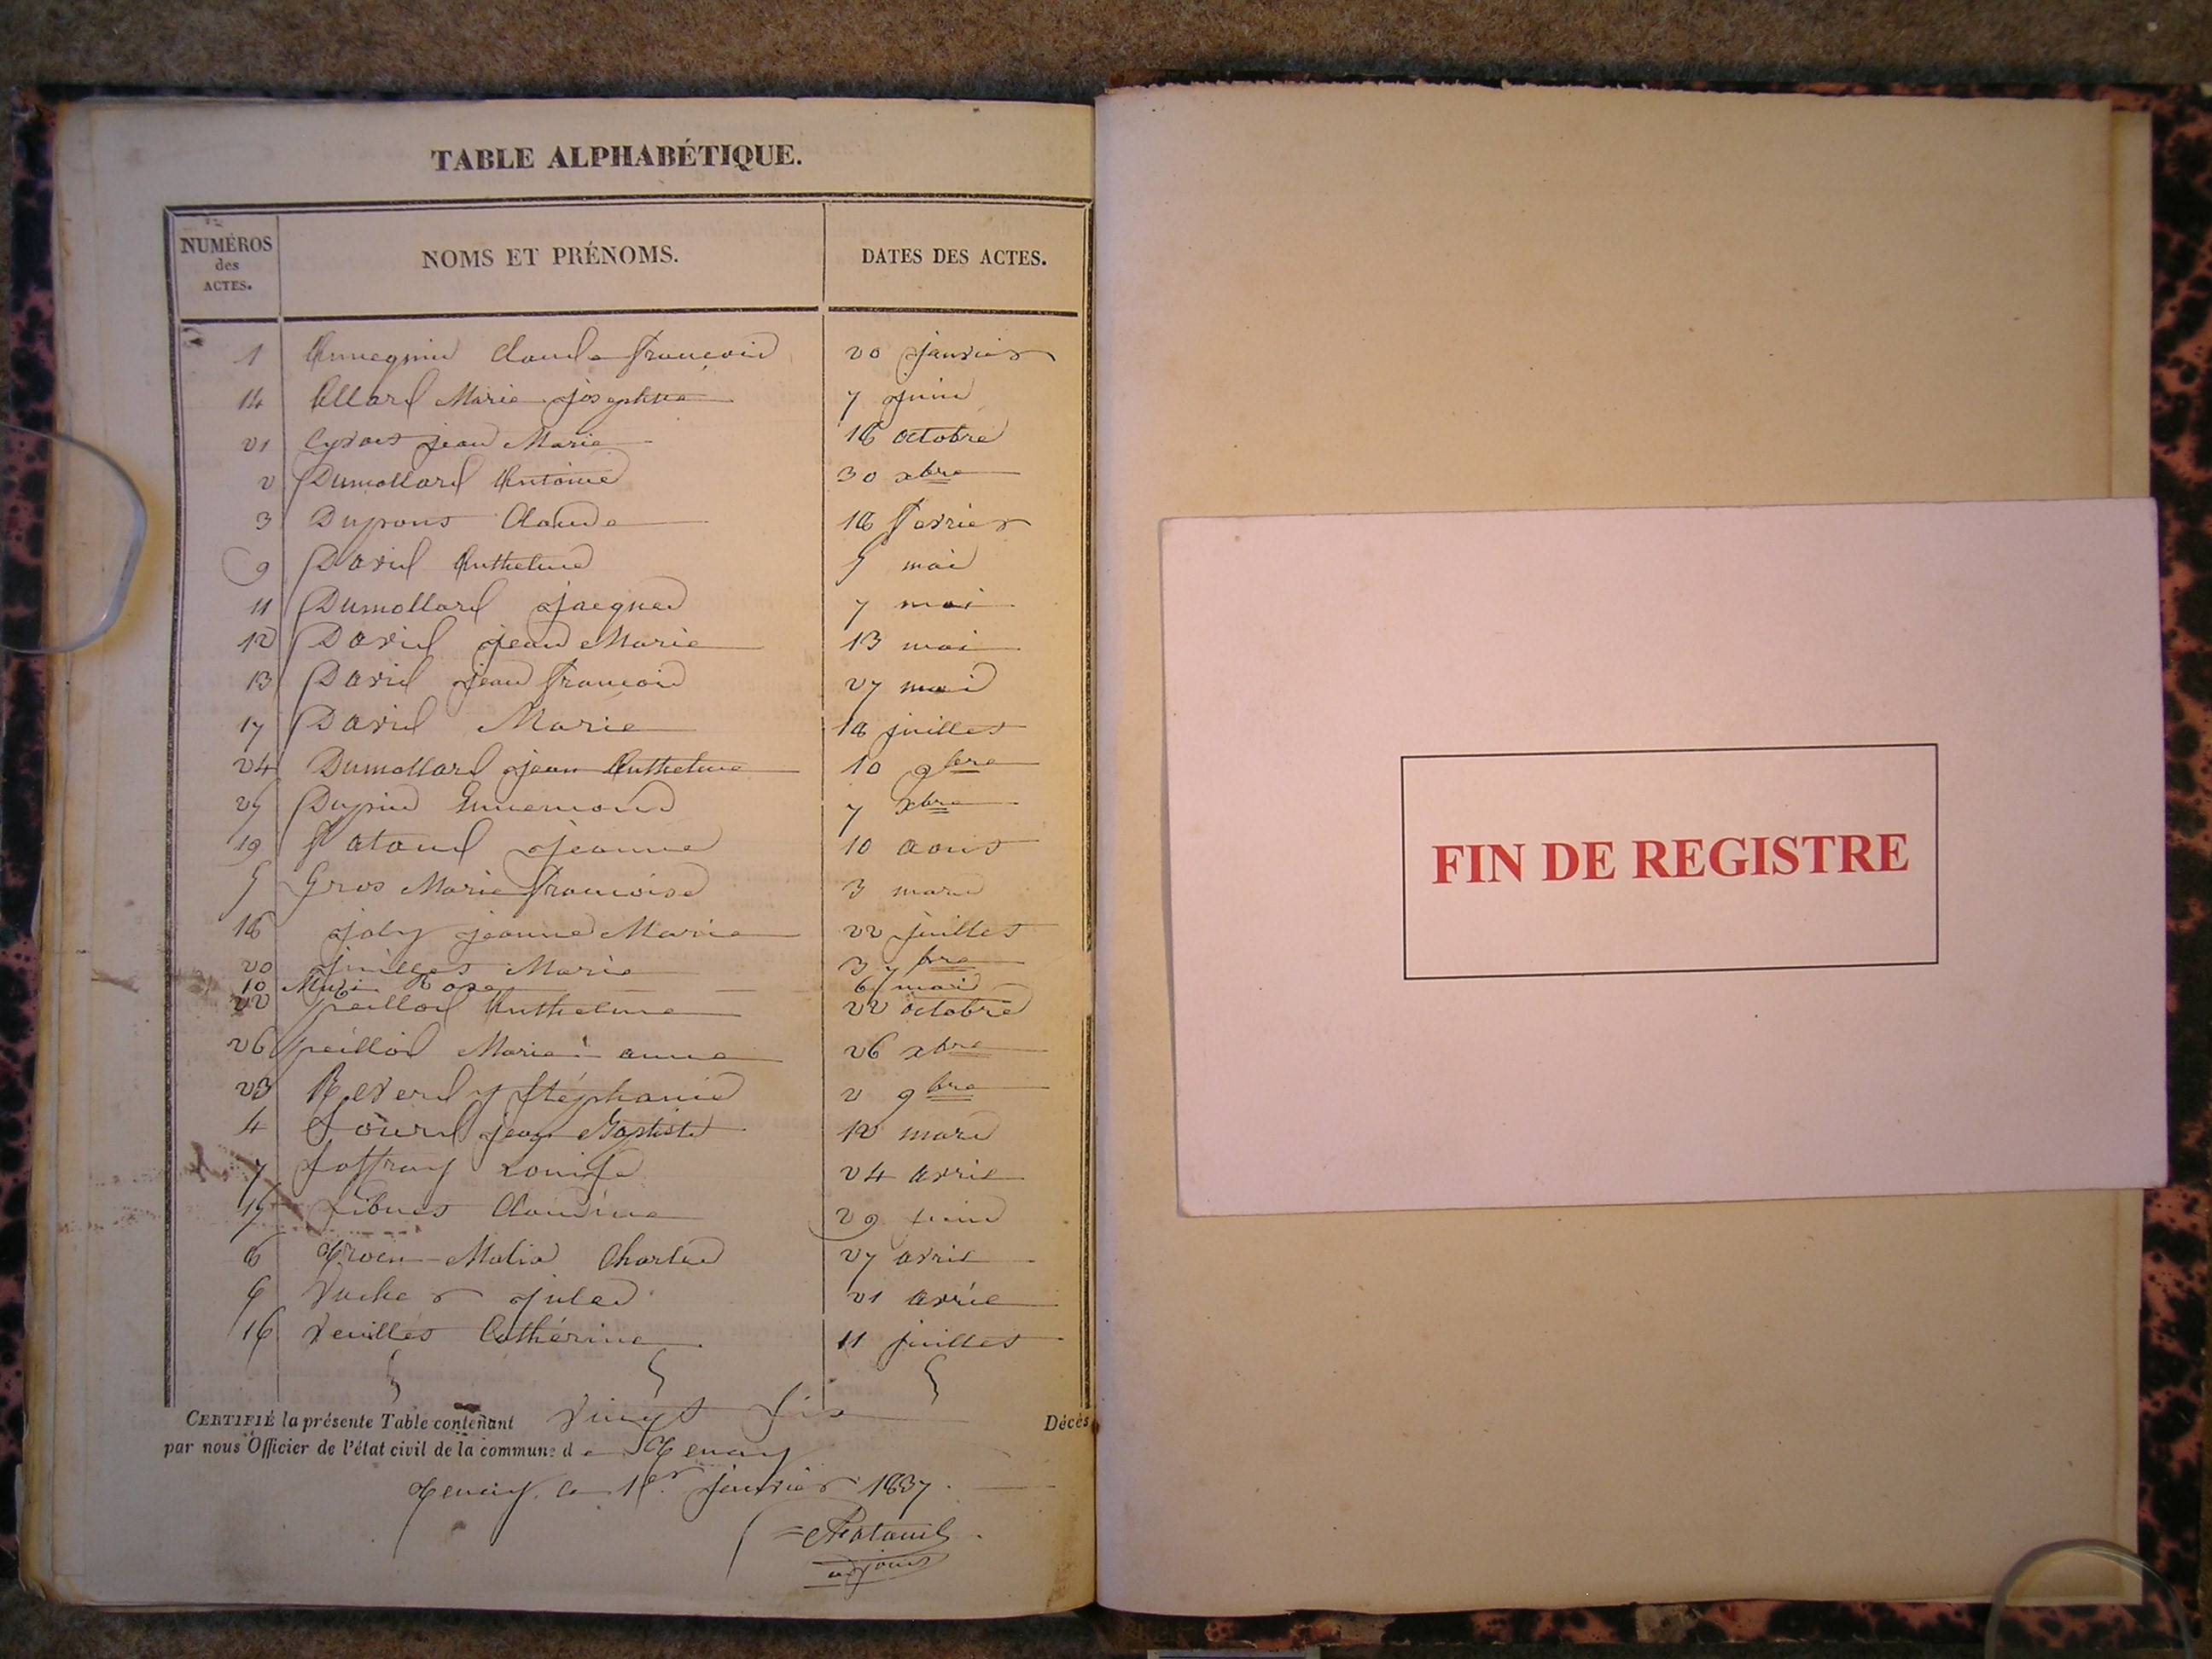 TABLE ALPHABÉTIQUE.
NUMÉROS des ACTES. NOMS ET PRÉNOMS. DATES DES ACTES.
1 Claude François 20 janvier
14 Allard Marie josephine 7 juin
21 jean Marie 16 octobre
2 Dumollard Antoine 30 xbre
3 Dupont Claude 16 fevrier
9 David Anthelme 5 mai
11 Dumollard jacques 7 mai
12 David jean Marie 13 mai
13 David jean françois 27 mai
17 David Marie 18 juillet
24 Dumollard jean Anthelme 10 9bre
25 Dupin Ennemond 7 xbre
19 fataud jeanne 10 aout
5 Gros Marie françoise 3 mars
18 joly jeanne Marie 22 juillet
20 juillet Marie 3 7bre
10 Rose 6 mai
22 peillod Anthelme 22 octobre
26 peillod Marie anne 26 xbre
23 Reverdy Stéphanie 2 9bre
4 jean Baptiste 12 mars
7 Louise 24 avril
15 Claudine 29 juin
8 Charles 27 avril
6 Vucher jules 21 avril
16 Catherine 11 juillet
CERTIFIÉ la présente Table contenant Vingt six Décès
par nous Officier de l'état civil de la commune de Tenay
Tenay, le 1er janvier 1837.
adjoint
FIN DE REGISTRE